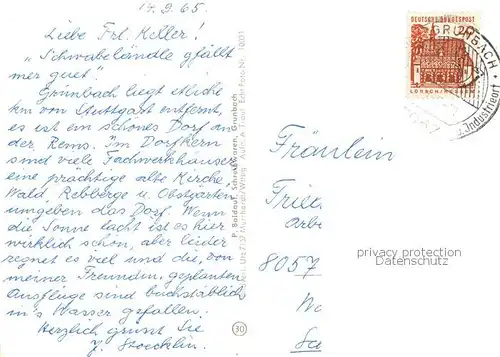 14.9.65.
Liebe Frl. Keller!
"Schwabeländle gfällt
mer guet."
Grünbach liegt etliche
km von Stuttgart entfernt,
es ist ein schönes Dorf an
der Rems. Im Dorfkern
sind viele Fachwerkhäuser
eine prächtige alte Kirche,
Wald, Rebberge u. Obstgärten
umgeben das Dorf. Wenn
die Sonne lacht ist es hier
wirklich schön, aber leider
regnet es viel und die, von
meiner Freundin, geplanten
Ausflüge sind buchstäblich
in's Wasser gefallen.
Herzlich grüsst Sie
Y. Stoecklin.
P. Baldauf, Schreibwaren, Grunbach
30
DEUTSCHE BUNDESPOST
LORSCH/HESSEN
GRUNBACH
Industrieort
Fräulein
8057
privacy protection
Datenschutz